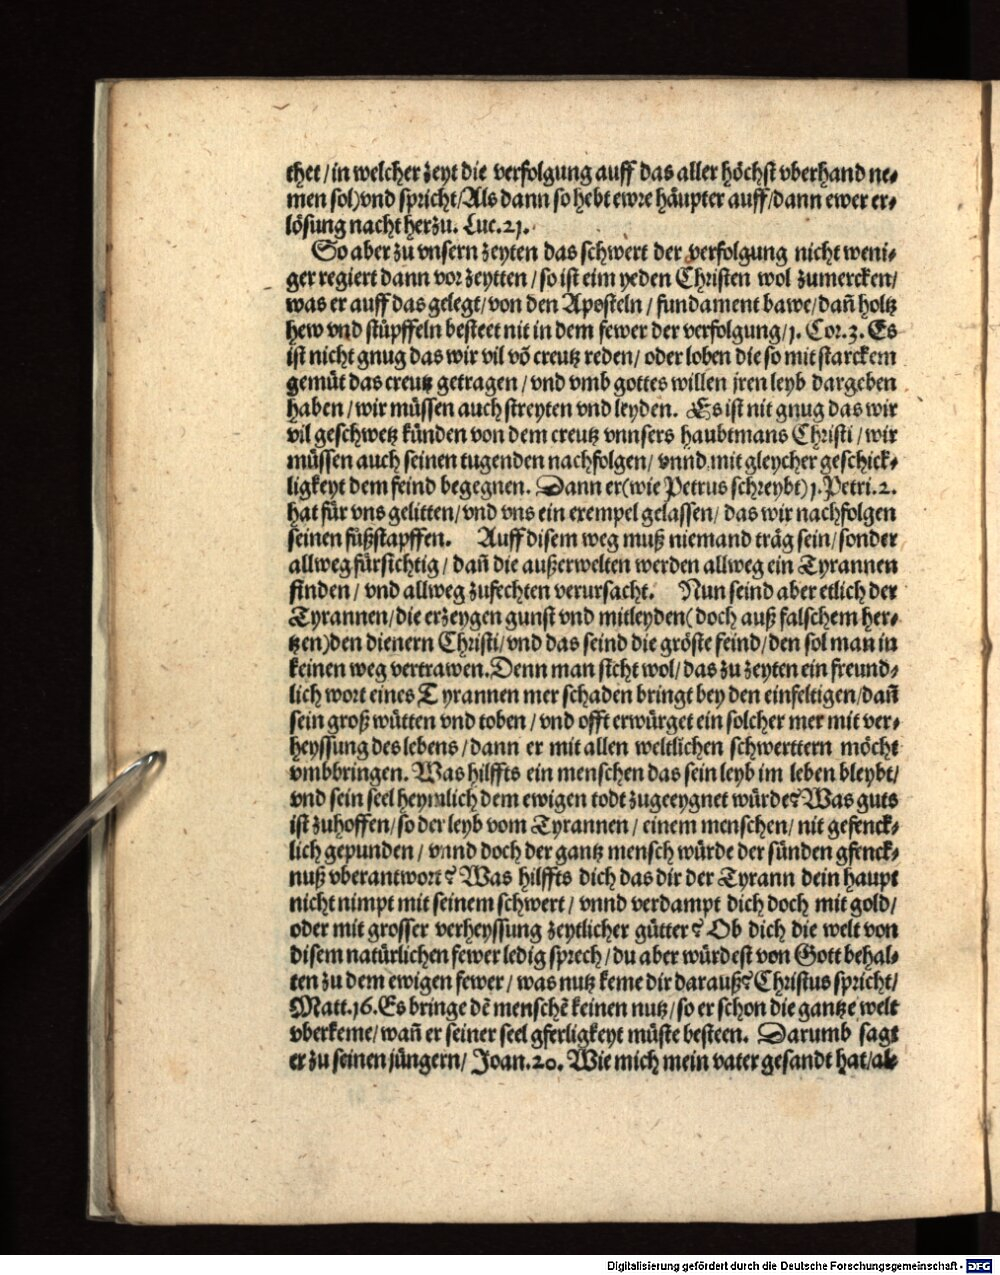 thet / in welcher zeyt die verfolgung auff das aller höchst vberhand ne⸗
men sol) vnd spricht / Als dann so hebt ewre häupter auff / dann ewer er⸗
lösung nacht herzu. Luc. 21.
So aber zu vnsern zeyten das schwert der verfolgung nicht weni⸗
ger regiert dann vor zeytten / so ist eim yeden Christen wol zumercken /
was er auff das gelegt / von den Aposteln / fundament bawe / dañ holtz
hew vnd stüpffeln besteet nit in dem fewer der verfolgung / 1. Cor. 3. Es
ist nicht gnug das wir vil võ creutz reden / oder loben die so mit starckem
gemüt das creutz getragen / vnd vmb gottes willen jren leyb dargeben
haben / wir müssen auch streyten vnd leyden. Es ist nit gnug das wir
vil geschwetz künden von dem creutz vnnsers haubtmans Christi / wir
müssen auch seinen tugenden nachfolgen / vnnd mit gleycher geschick⸗
ligkeyt dem feind begegnen. Dann er (wie Petrus schreybt) 1. Petri. 2.
hat für vns gelitten / vnd vns ein exempel gelassen / das wir nachfolgen
seinen fußstapffen. Auff disem weg muß niemand träg sein / sonder
allweg fürsichtig / dañ die außerwelten werden allweg ein Tyrannen
finden / vnd allweg zufechten verursacht. Nun seind aber etlich der
Tyrannen / die erzeygen gunst vnd mitleyden (doch auß falschem her⸗
tzen) den dienern Christi / vnd das seind die gröste feind / den sol man in
keinen weg vertrawen. Denn man sicht wol / das zu zeyten ein freund⸗
lich wort eines Tyrannen mer schaden bringt bey den einfeltigen / dañ
sein groß wütten vnd toben / vnd offt erwürget ein solcher mer mit ver⸗
heyssung des lebens / dann er mit allen weltlichen schwerttern möcht
vmbbringen. Was hilffts ein menschen das sein leyb im leben bleybt /
vnd sein seel heymlich dem ewigen todt zugeeygnet würde? Was guts
ist zuhoffen / so der leyb vom Tyrannen / einem menschen / nit gefenck⸗
lich gepunden / vnnd doch der gantz mensch würde der sünden gfenck⸗
nuß vberantwort? Was hilffts dich das dir der Tyrann dein haupt
nicht nimpt mit seinem schwert / vnnd verdampt dich doch mit gold /
oder mit grosser verheyssung zeytlicher gütter? Ob dich die welt von
disem natürlichen fewer ledig sprech / du aber würdest von Gott behal⸗
ten zu dem ewigen fewer / was nutz keme dir darauß? Christus spricht /
Matt. 16. Es bringe dẽ menschẽ keinen nutz / so er schon die gantze welt
vberkeme / wañ er seiner seel gferligkeyt müste besteen. Darumb sagt
er zu seinen jüngern / Joan. 20. Wie mich mein vater gesandt hat / al⸗
Digitalisierung gefördert durch die Deutsche Forschungsgemeinschaft - DFG